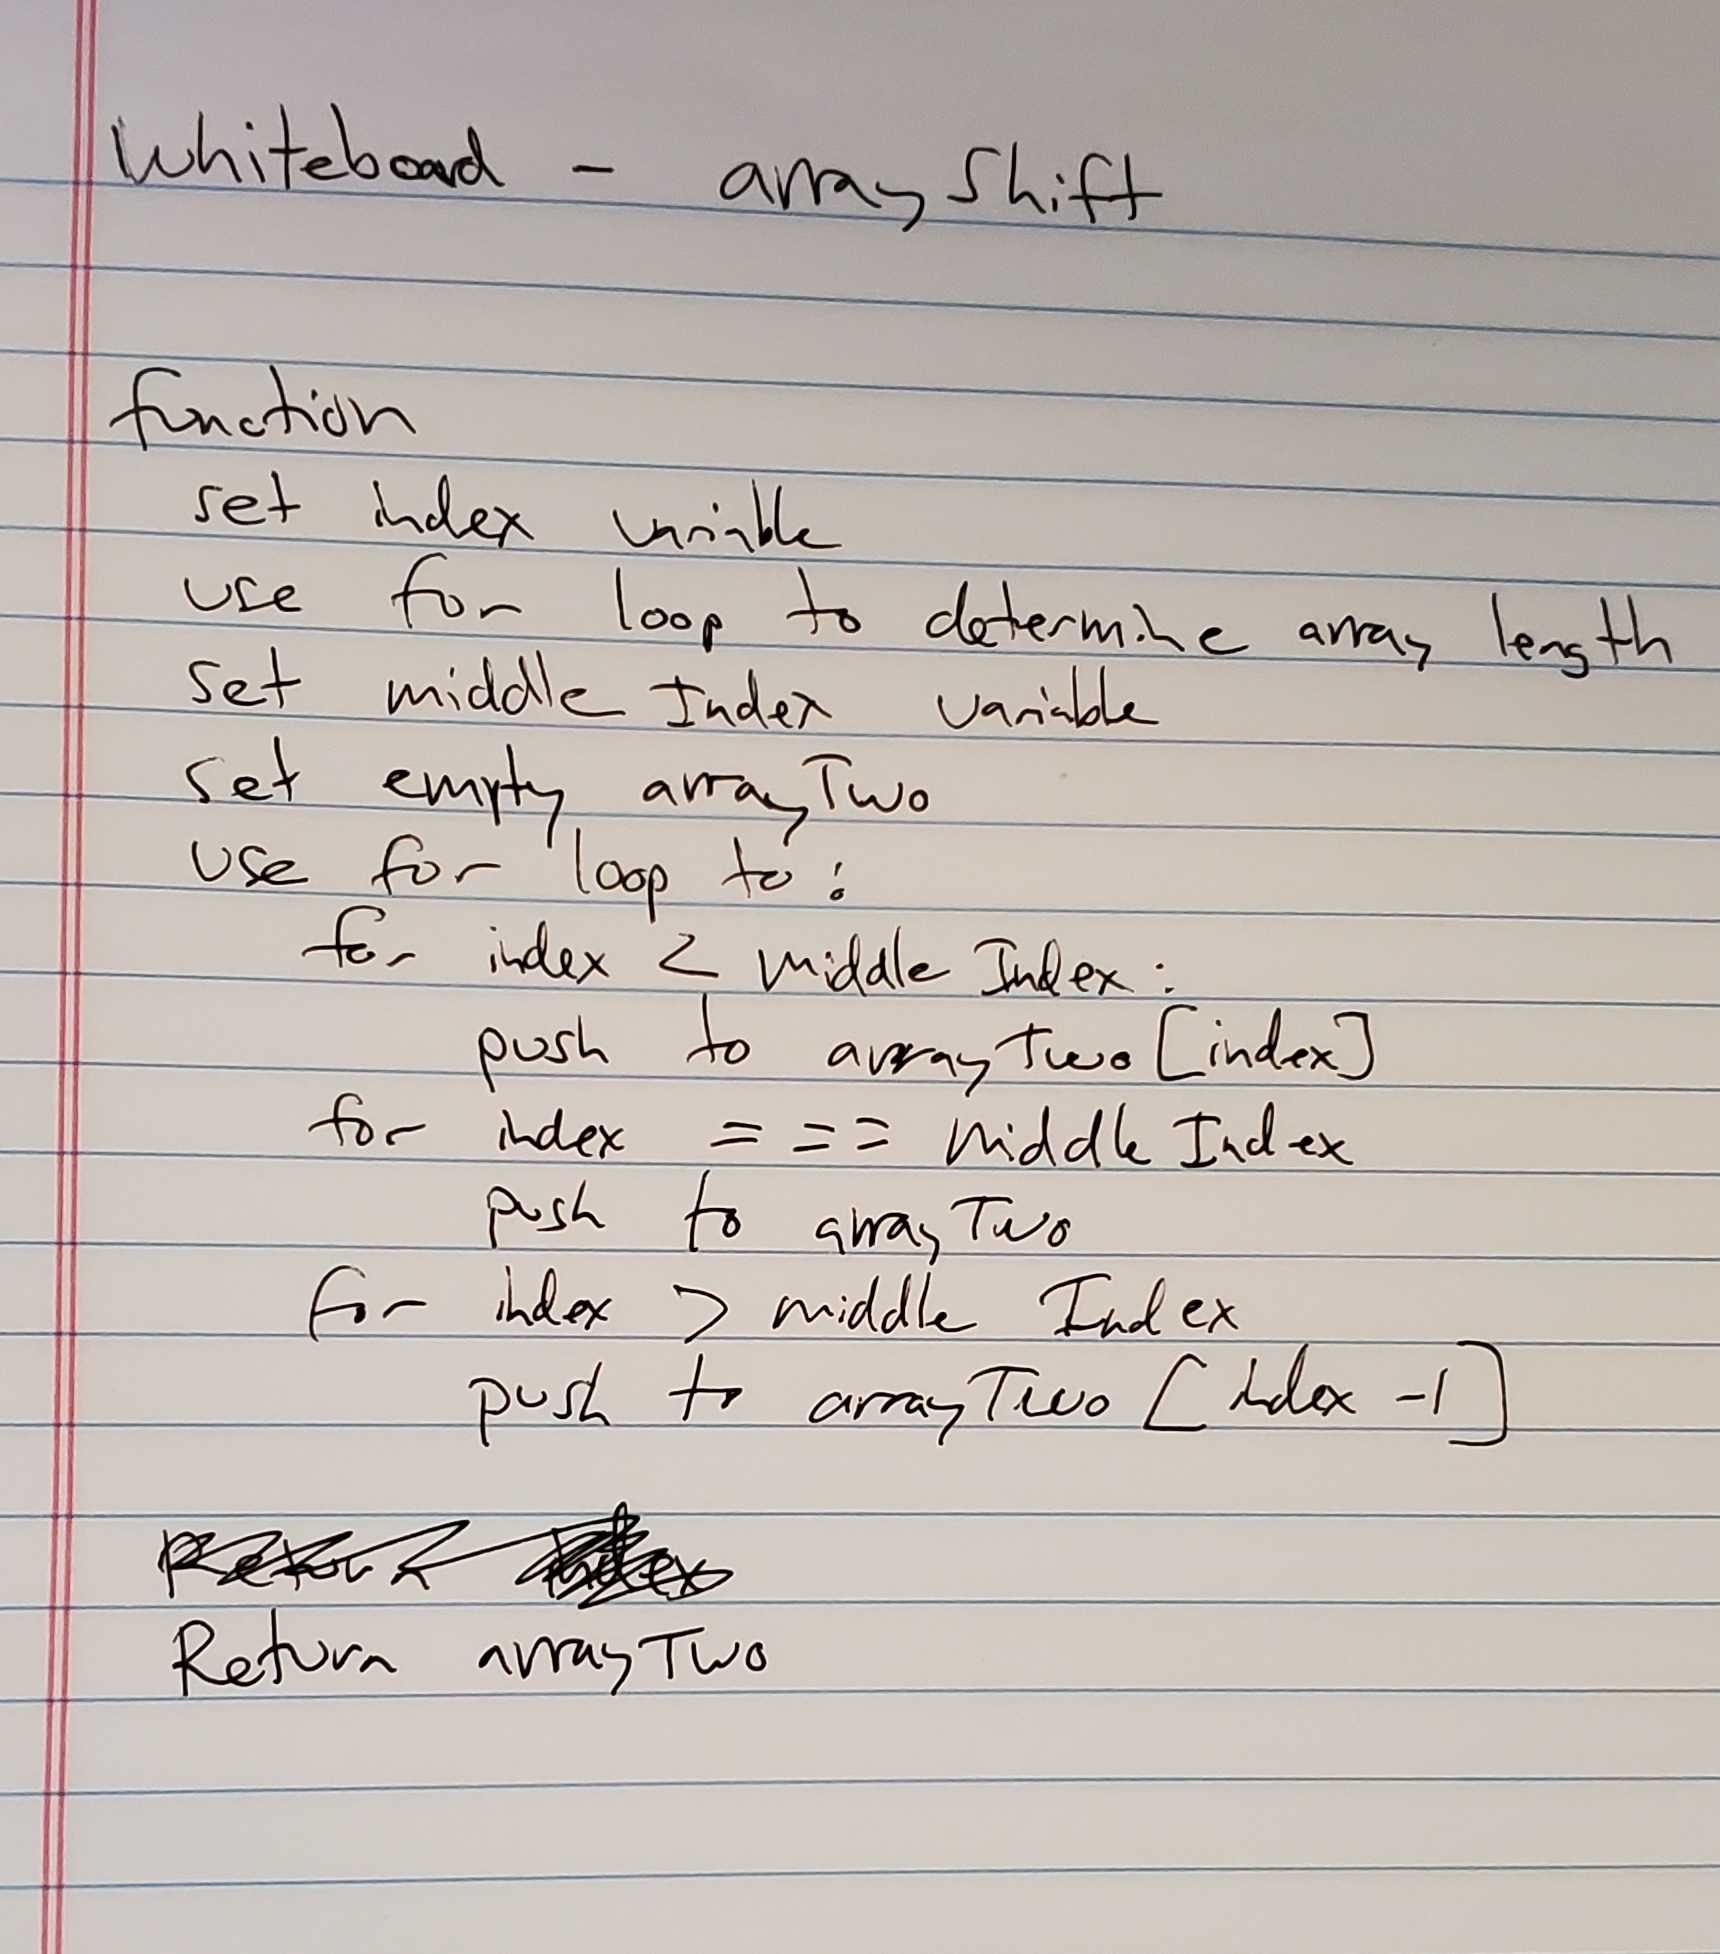 Whiteboard - arrayShift
function
set index variable
use for loop to determine array length
set middleIndex variable
set empty arrayTwo
use for loop to:
for index < middleIndex:
push to arrayTwo[index]
for index === middleIndex
push to arrayTwo
for index > middleIndex
push to arrayTwo[index -1]
Return arrayTwo